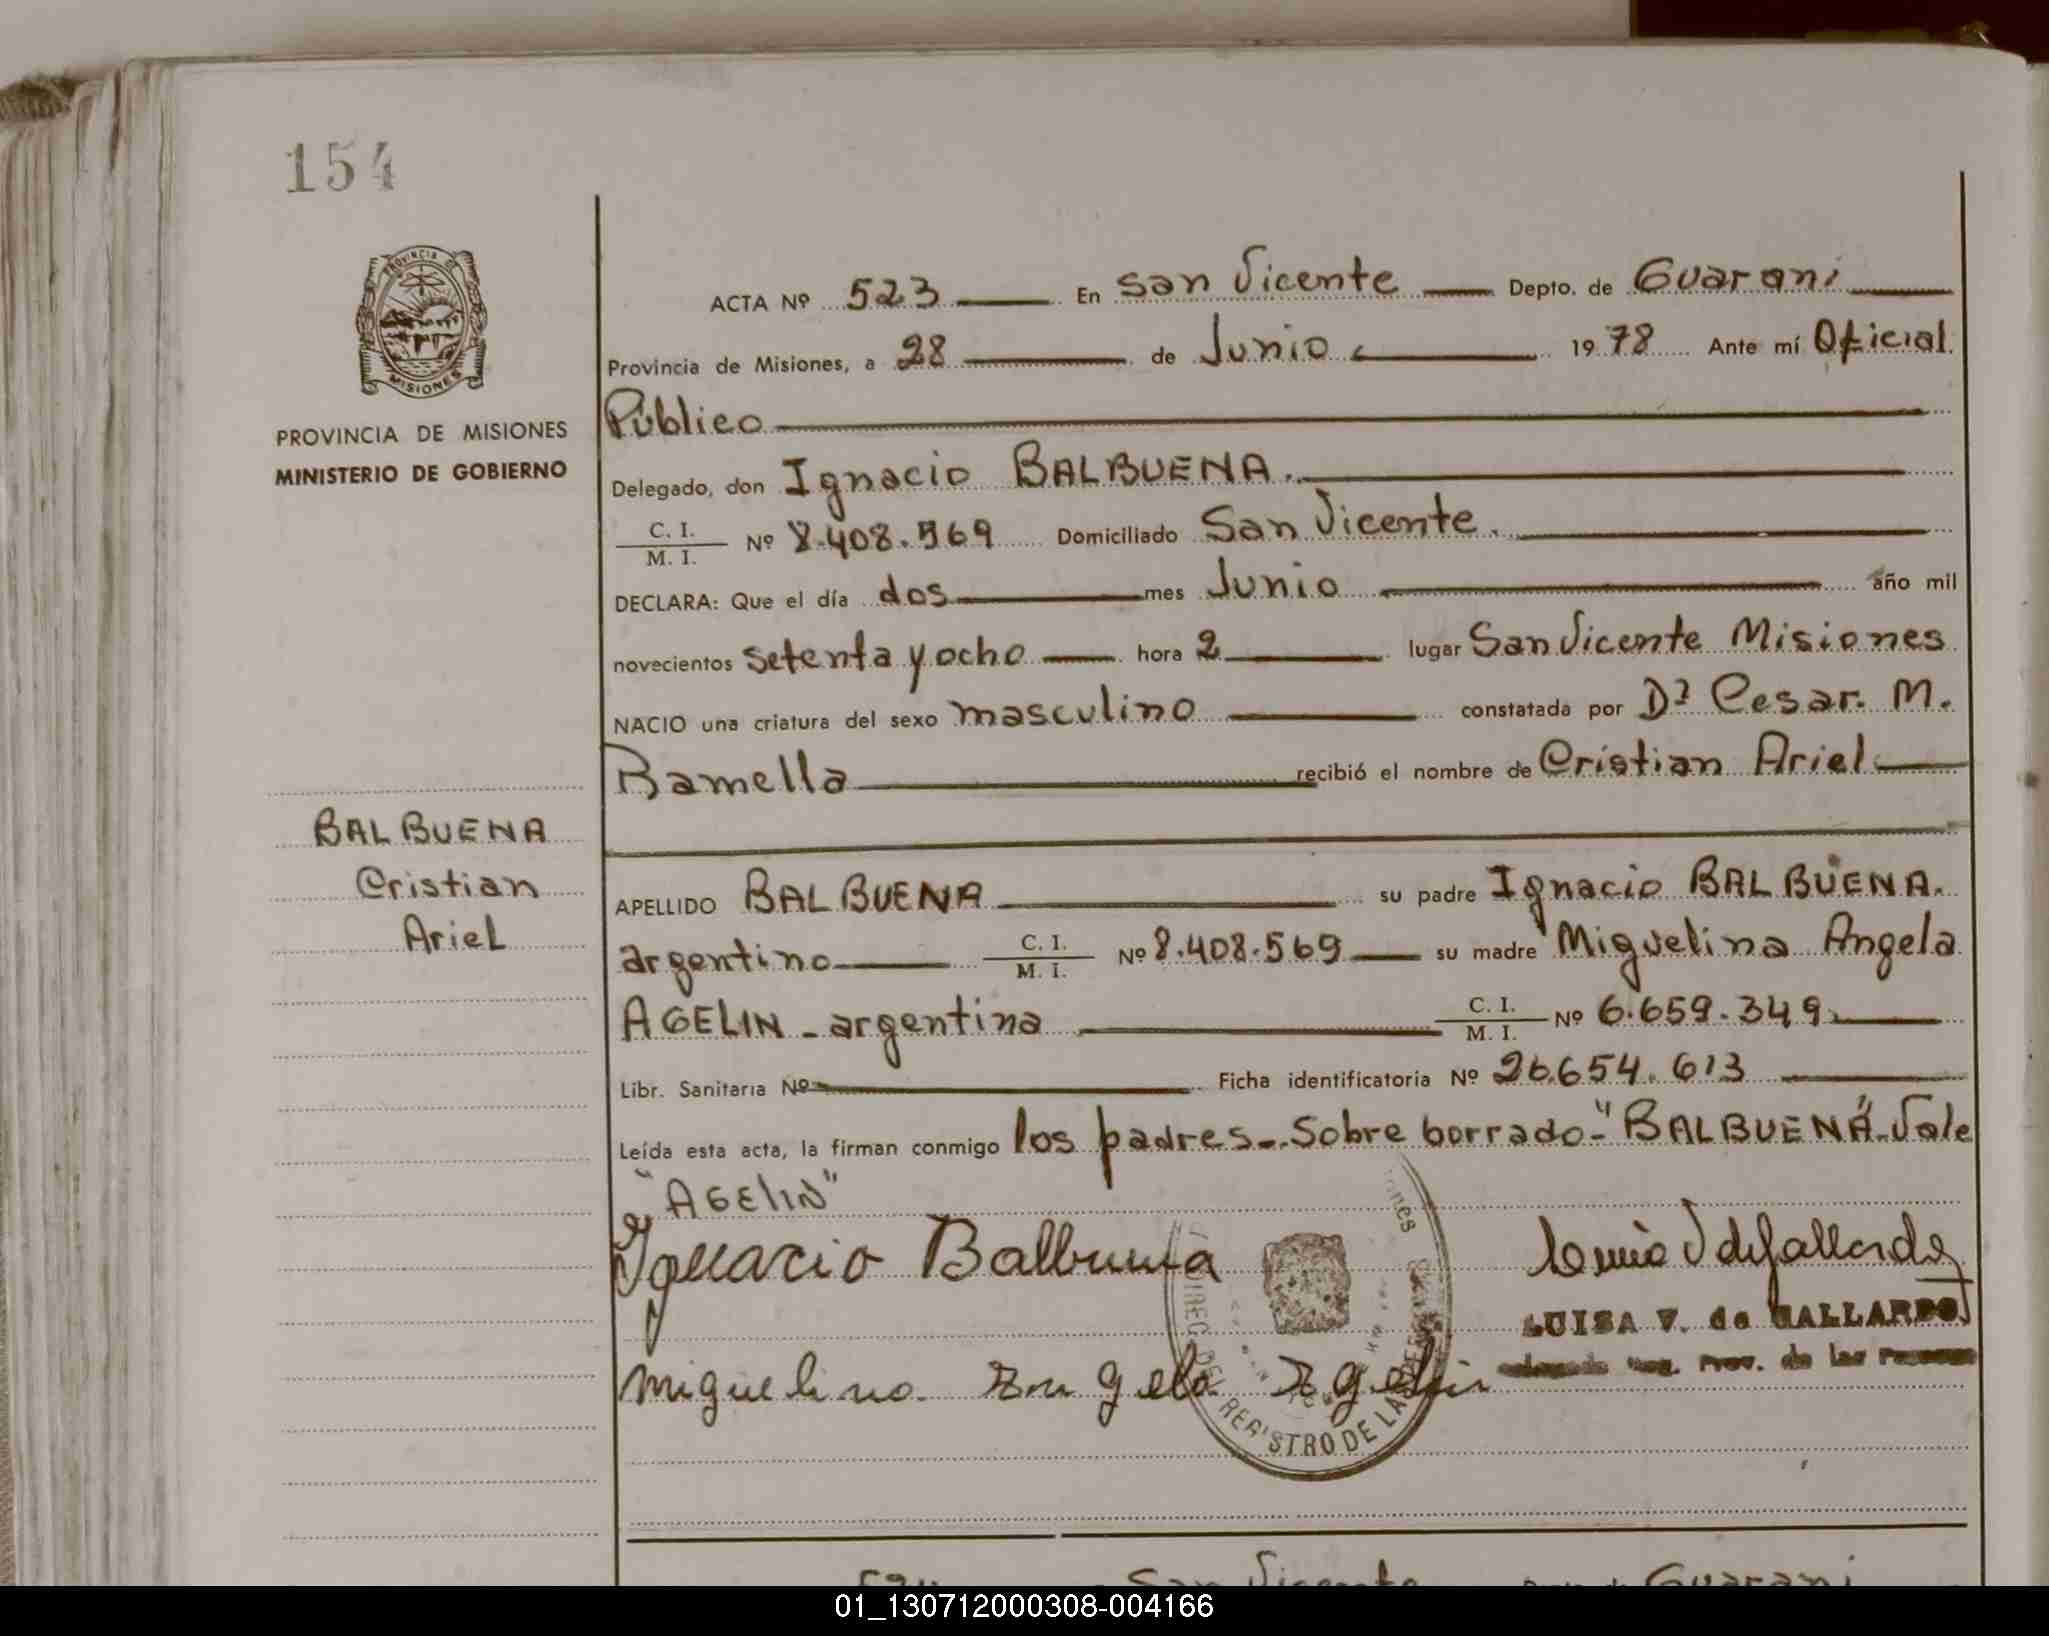 154
PROVINCIA DE
MISIONES
PROVINCIA DE MISIONES
MINISTERIO DE GOBIERNO
ACTA Nº 523 En San Vicente Depto. de Guarani
Provincia de Misiones, a 28 de Junio 1978 Ante mí Oficial
Público
Delegado, don Ignacio BALBUENA.
C. I.
M. I. Nº 8.408.569 Domiciliado San Vicente.
DECLARA: Que el día dos mes Junio año mil
novecientos setenta y ocho hora 2 lugar San Vicente Misiones
NACIO una criatura del sexo masculino constatada por Dr Cesar. M.
Ramella recibió el nombre de Cristian Ariel
BALBUENA
Cristian
Ariel
APELLIDO BALBUENA su padre Ignacio BALBUENA.
argentino C. I. M. I. Nº 8.408.569 su madre Miguelina Angela
AGELIN - argentina C. I. M. I. Nº 6.659.349
Libr. Sanitaria Nº Ficha identificatoria Nº 26.654.613
Leída esta acta, la firman conmigo los padres. Sobre borrado - "BALBUENA". Vale
"AGElIN"
Ignacio Balbuena
LUISA V. de GALLARDO
Prov. de las
Miguelina Angela Agelin
DIREC. DEL REGISTRO DE LAS
01_130712000308-004166